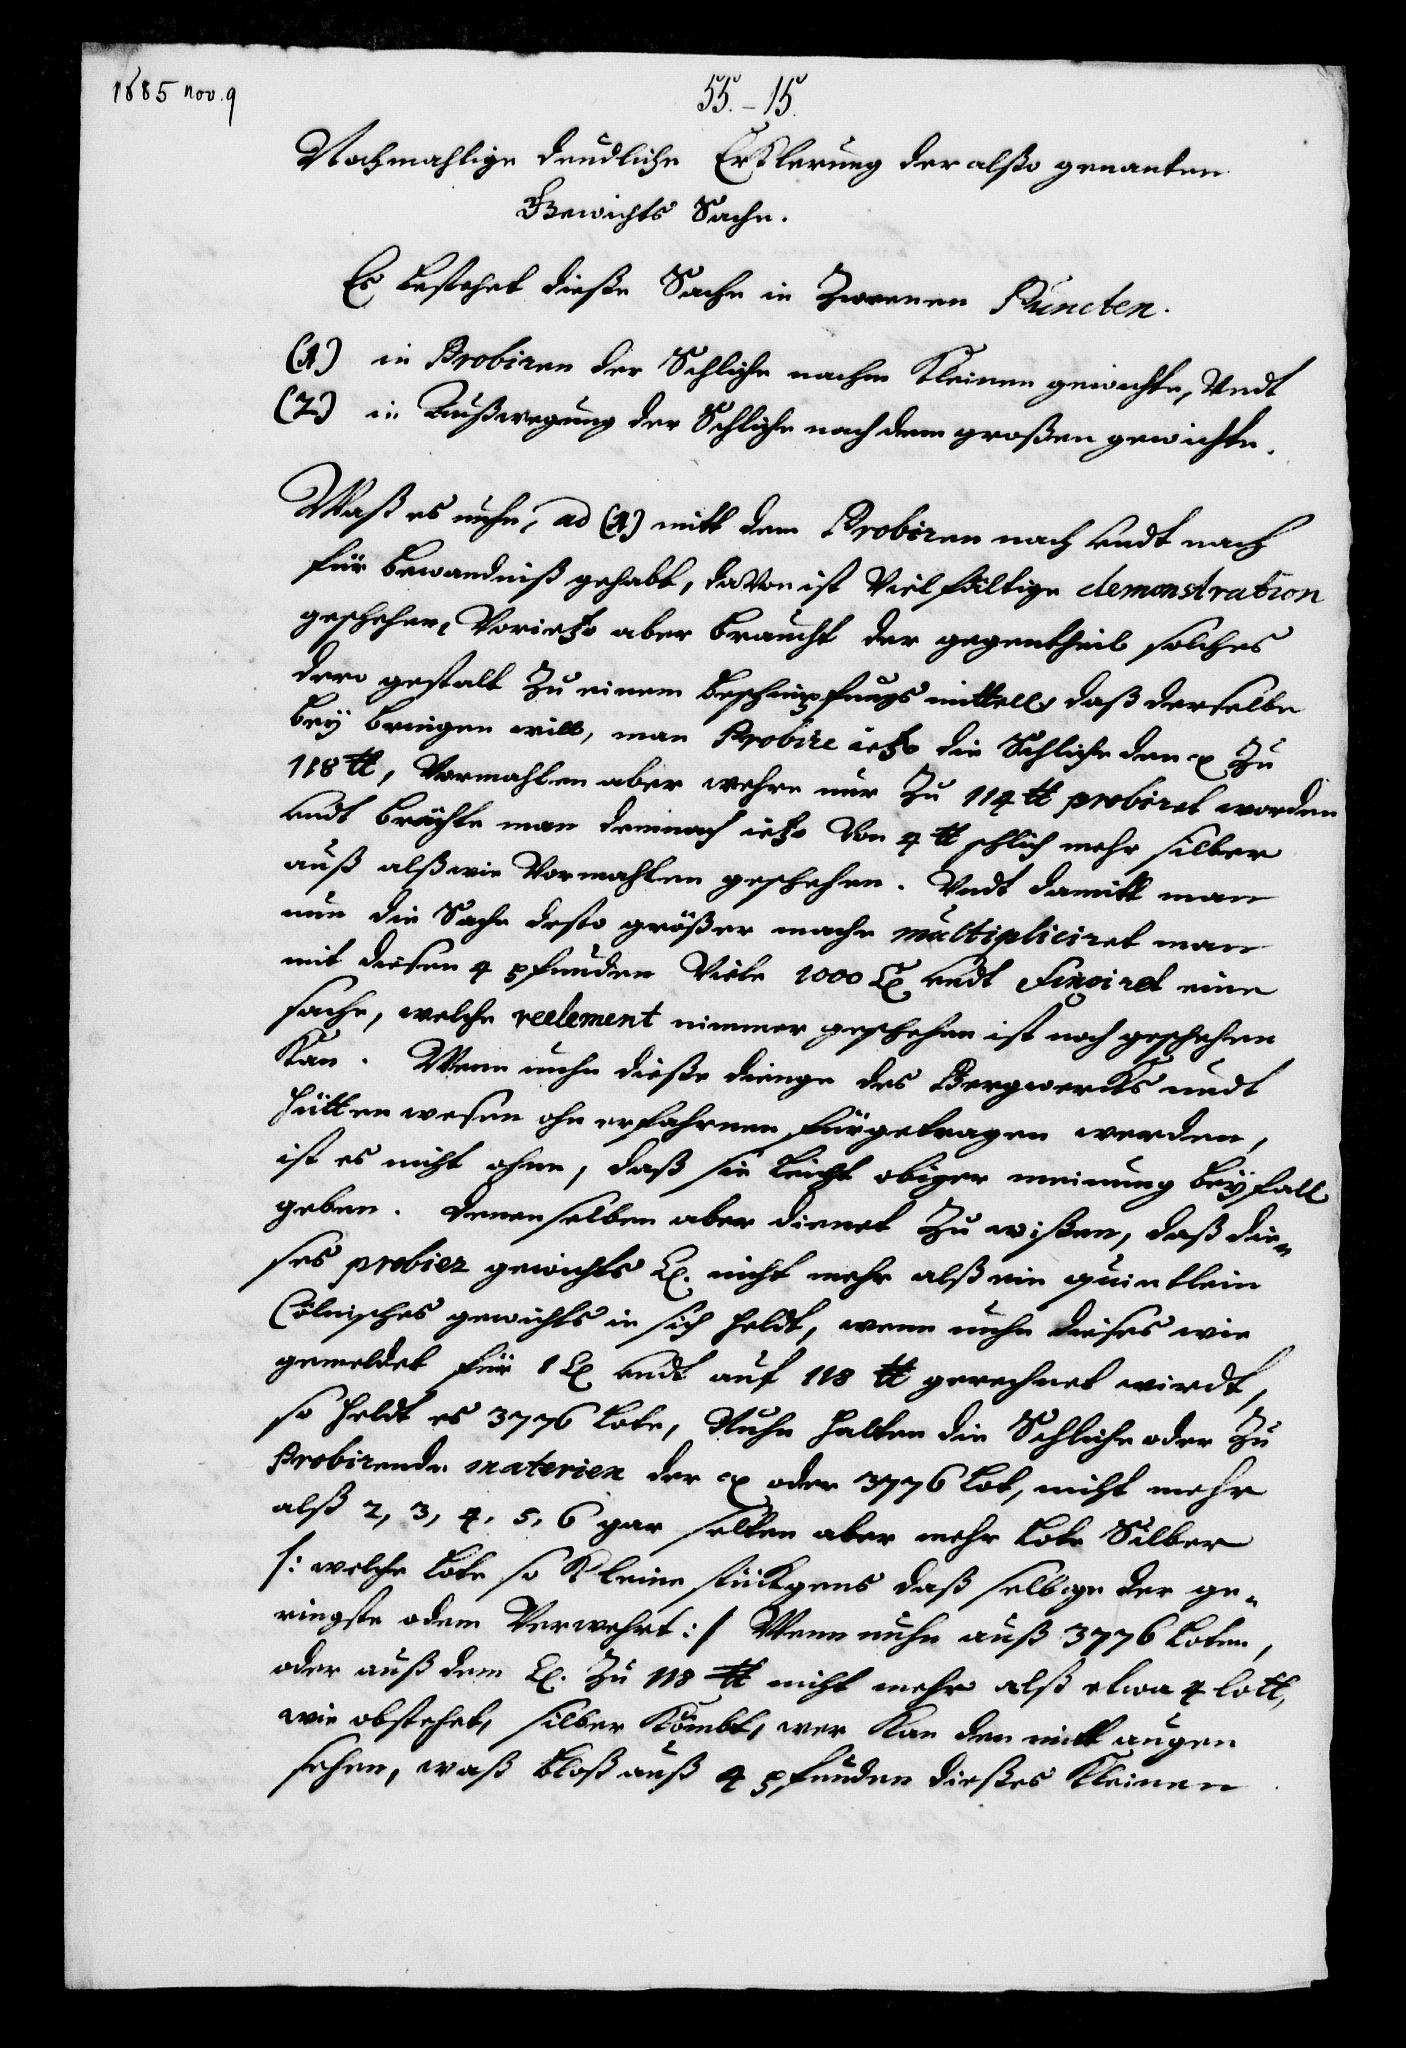 1685 nov. 9
55.-15.
Nochmahlige deudliche Erklerung der alßo genanten
Gewichts Sache.
Es bestehet dieße Sache in Zweenen Puncten.
(1) in Probiren der Schliche nachm Kleinen gewichte, Undt
(2) in Außwegung der Schliche nach dem großen gewichte.
Waß es nuhn, ad (1) mitt dem Probiren nach undt nach
für bewandniß gehabt, davon ist Vielfältige demonstration
geschehen, Vorietzo aber braucht der gegentheil solches
dero gestalt Zu einem beschimpfungs mittell, daß derselbe
bey bringen will, man Probire ietzo die Schliche den Zu
118 ℔, Vormahlen aber wehre nur Zu 114 ℔ probiret worden
undt brächte man demnach ietzo Von 4 ℔ schlich mehr silber
auß alß wie Vormahlen geschehen. Undt damitt man
nun die Sache desto größer mache multipliciret man
mit diesen 4 pfunden Viele 1000 undt Fingiret eine
sache, welche reelement nimmer geschehen ist noch geschehen
Kan. Wenn nuhn dieße dinge des Bergwercks undt
hütten wesen ohn erfahrnen fürgetragen werden,
ist es nicht ohne, daß sie leicht obiger meinung beyfall
geben. denenselben aber dienet Zu wißen, daß die-
ses probier gewichts nicht mehr alß ein quintlein
Cölnisches gewichts in sich heldt, wenn nuhn dieses wie
gemeldet für 1 undt auf 118 ℔ gerechnet wirdt,
so heldt es 3776 Lote, Nuhn halten die Schliche oder Zu
Probirende materien der oder 3776 Lot, nicht mehr
alß 2, 3, 4, 5, 6 gar selten aber mehr Lote Silber
/: welche Lote so Kleine stückgens daß selbige der ge-
ringste odem Verwehet :/ Wenn nuhn auß 3776 Loten,
oder auß dem Zu 118 ℔ nicht mehr alß etwa 4 lott,
wie obstehet, silber Kömbt, wer Kan den mitt augen
sehen, waß bloß auß 4 pfunden dießes Kleinen